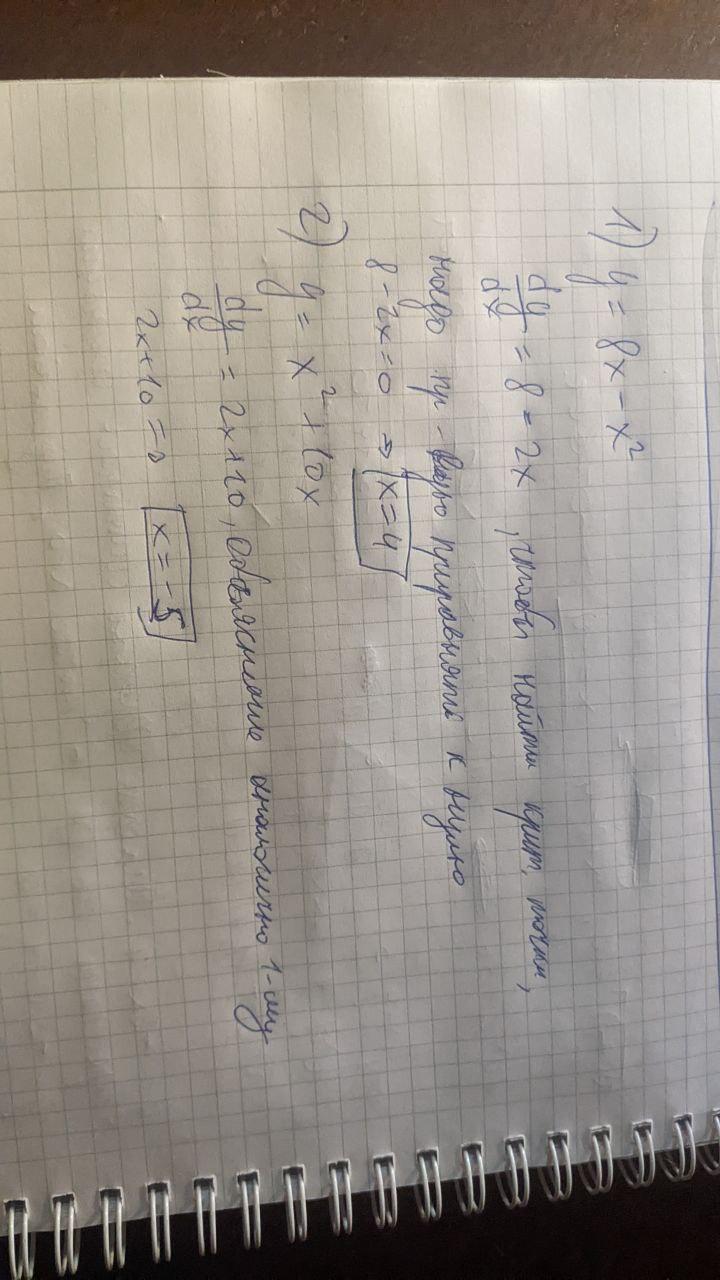 1) y = 8x - x²
dy/dx = 8 - 2x, чтобы найти крит. точки,
надо пр-вную приравнять к нулю
8 - 2x = 0 ⇒ x = 4
2) y = x² + 10x
dy/dx = 2x + 10, объяснение аналогично 1-му
2x + 10 = 0 x = -5